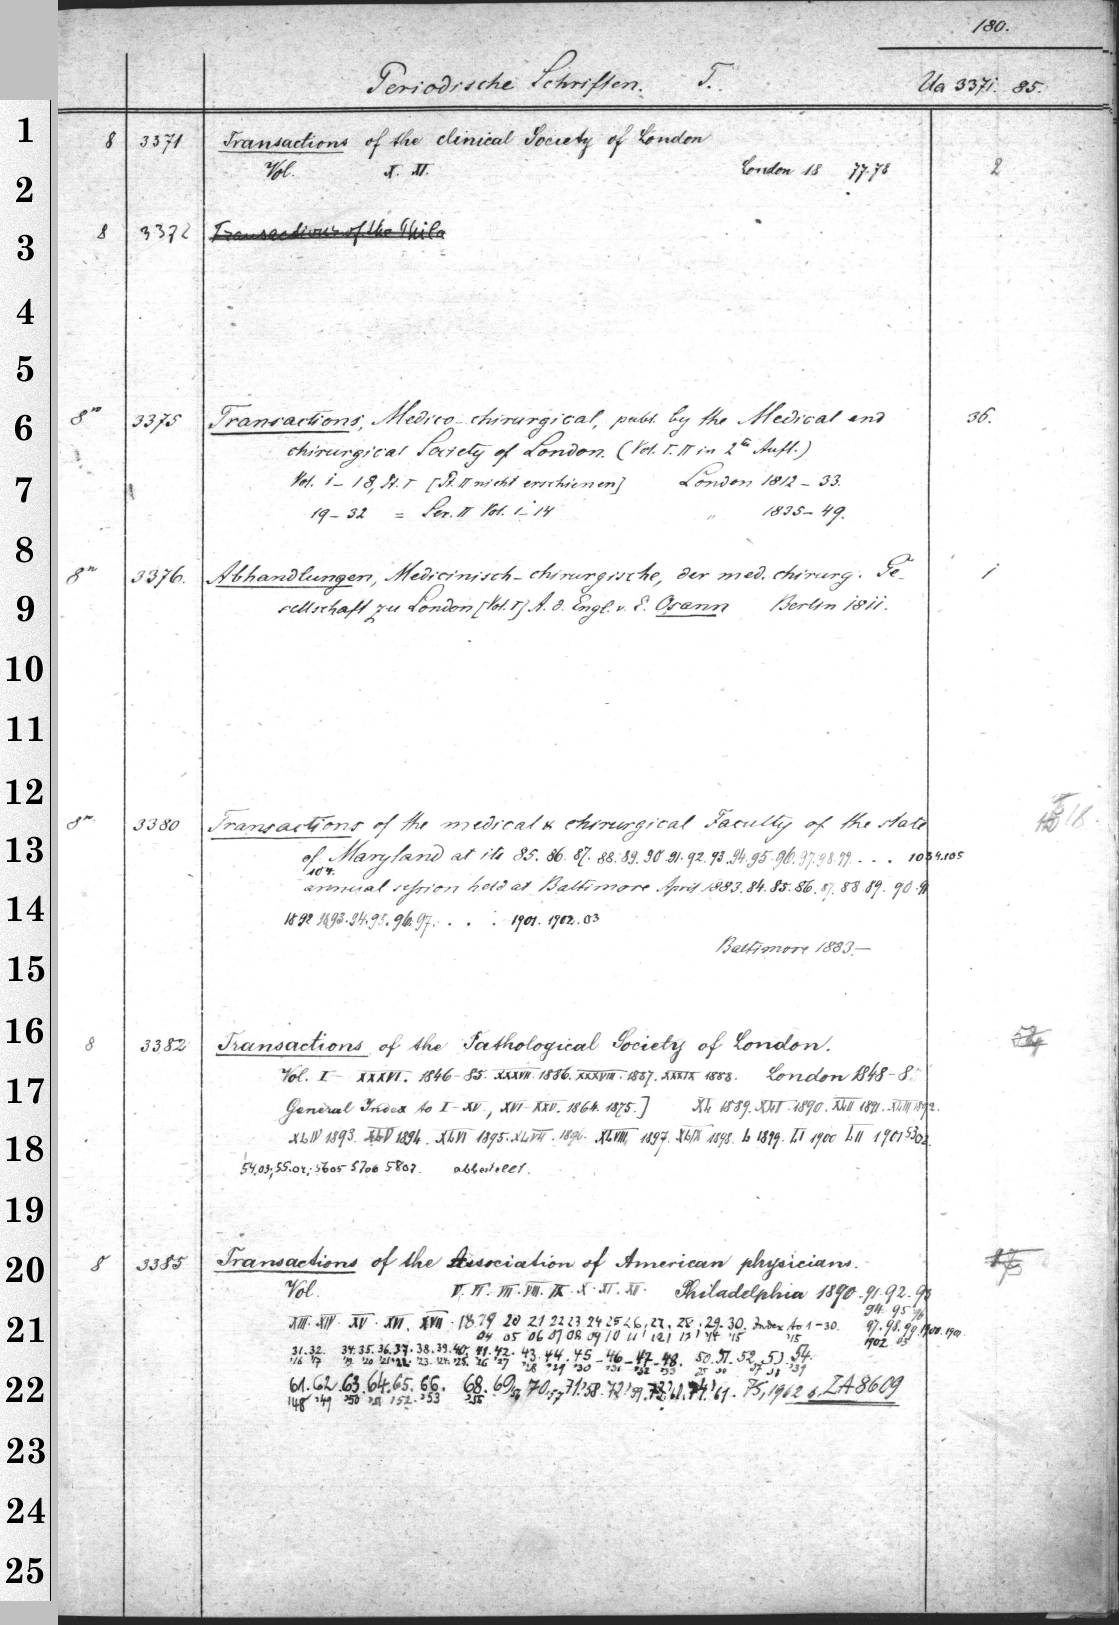 180.
Periodische Schriften. T. Ua 3371. 85.
1
8 3371 Transactions of the clinical Society of London
Vol. X. XI. London 18 77.78 2
2
8 3372 Transactions of the Phila
3
4
5
8° 3375 Transactions, Medico-chirurgical, publ. by the Medical and 36.
6
chirurgical Society of London. (Vol. I. II in 2te Aufl.)
Vol. 1-18, Pt. I [Pt. II nicht erschienen] London 1812-33.
7
19-32 = Ser. II Vol. 1-14 " 1835-49.
8
8° 3376. Abhandlungen, Medicinisch-chirurgische, der med. chirurg. Ge- 1
9
sellschaft zu London [Vol. I] A. d. Engl. v. E. Osann Berlin 1811.
10
11
12
8° 3380 Transactions of the medical & chirurgical Faculty of the state 18.
13
of Maryland at its 85. 86. 87. 88. 89. 90. 91. 92. 93. 94. 95. 96. 97. 98. 99. . . . 103 4.105
104.
annual session held at Baltimore April 1883. 84. 85. 86. 87. 88 89. 90. 91
14
1892 1893. 94. 95. 96. 97. . . . 1901. 1902. 03
Baltimore 1883.—
15
16
8 3382 Transactions of the Pathological Society of London.
Vol. I - XXXVI. 1846-85. XXXVII. 1886. XXXVIII. 1887. XXXIX 1888. London 1848-8
17
General Index to I-XV, XVI-XXV. 1864. 1875.] XL 1889. XLI. 1890. XLII 1891. XLIII 1892.
XLIV 1893. XLV 1894. XLVI 1895. XLVII. 1896. XLVIII, 1897. XLIX 1898. L 1899. LI 1900 LII 1901 53 02
18
54.03; 55.04; 5605 5706 5807. abbestellt.
19
8 3385 Transactions of the Association of American physicians.
20
Vol. V. VI. VII. VIII. IX. X. XI. XII. Philadelphia 1890. 91. 92. 93
94. 95 96
21
XIII. XIV. XV. XVI. XVII. 18. 19 20 21 22 23 24 25 26. 27. 28. 29. 30. Index to 1-30. 97. 98. 99. 1900. 1901.
04 05 06 07 08 09 10 11 12 13 14 15 15 1902. 03
31. 32. 34. 35. 36. 37. 38. 39. 40. 41. 42. 43. 44. 45-46-47-48. 50. 51. 52. 53. 54.
22
61. 62 63. 64. 65. 66. 68. 69 70 71 58. 72 59. 73 74. 61. 75, 1962 s. ZA 8609
148 149 150 151 152 153
23
24
25